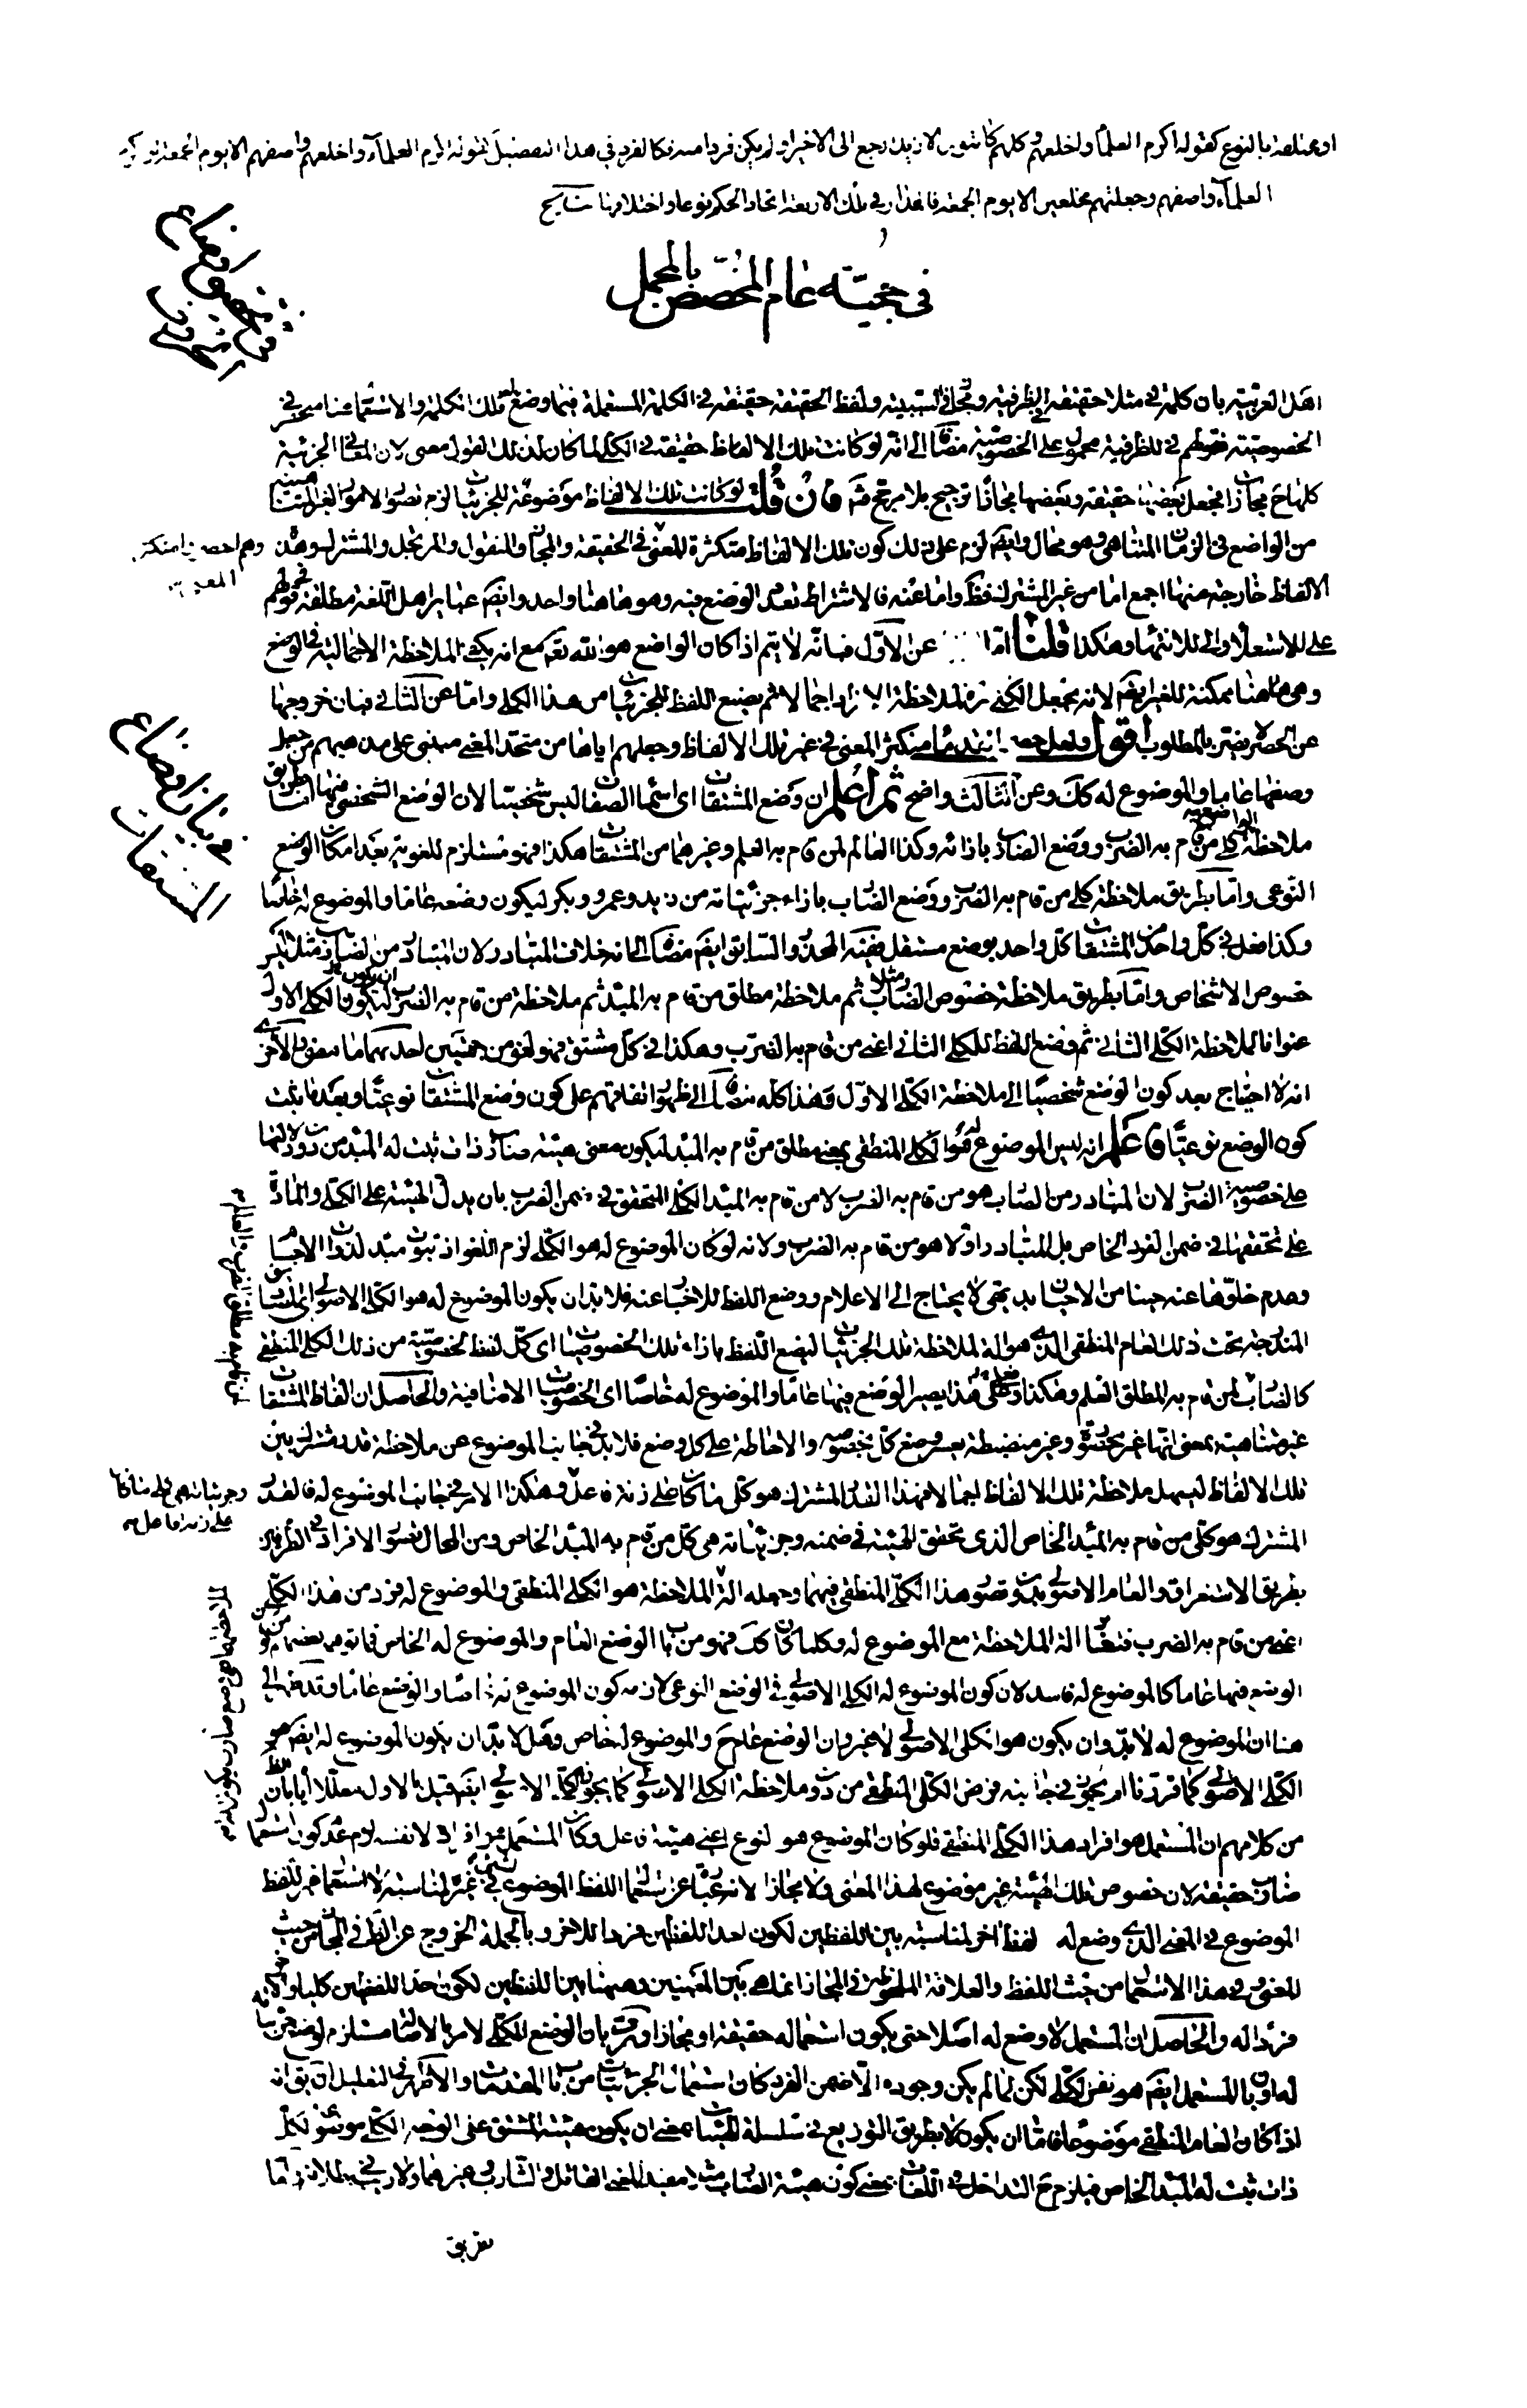 العلماء واصفهم وجعلتهم مخلعين الا يوم الجمعة في تلك الاربعة اتحاد الحكم نوعا واختلافها
في حجيته عام المخصص بالمجمل
اهل العربية بان كلمة في مثلا حقيقة في الظرفية ومجاز في السببية ولفظ الحقيقة حقيقة في الكلمة المستعملة فيما وضع له تلك الكلمة والاستعمال
الخصوصية فقولهم في للظرفية محمول على الخصوصية مضافا الى انه لو كانت تلك الالفاظ حقيقة في الكلي لما كان لذلك القول معنى لان المعاني الجزئية
كلها ح مجاز فجعل بعضها حقيقة وبعضها مجازا ترجيح بلا مرجح فان قلت لو كانت تلك الالفاظ موضوعة للجزئيات لزم تصور الامور الغير المتناهية
من الواضع في الزمان المتناهي وهو محال وايضا لزم على ذلك كون تلك الالفاظ متكثرة المعنى في الحقيقة والمجاز والمنقول والمرتجل والمشترك وهذه
الالفاظ خارجة منها اجمع اما من غير المشترك فظ واما عنه فلاشتراط تعدد الوضع فيه وهو هاهنا واحد وايضا اهل اللغة مطلقة قولهم
على للاستعلاء والى للانتهاء وهكذا قلنا اما عن الاول فبانه لا يتم اذا كان الواضع هو الله تعم مع انه يكفي الملاحظة الاجمالية في الوضع
وهي هاهنا ممكنة للغير ايضا لانه يجعل الكلي مرة لملاحظة الافراد اجمالا ثم يضع اللفظ للجزئيات من هذا الكلي واما عن الثاني فبان خروجها
عن الحصر لا يضر بالمطلوب اقول ولعل متكثر المعنى في غير تلك الالفاظ وجعلهم اياها من متحد المعنى مبني على مذهبهم من جعل
وضعها عاما والموضوع له كك وعن الثالث واضح ثم اعلم ان وضع المشتقات اى اسماء الصفات ليس شخصيا لان الوضع الشخصي فيها اما بطريق
ملاحظة الواضع كلي من قام به الضرب ووضع الضارب بازائه وكذا العالم لمن قام به العلم وغيرهما من المشتقات هكذا فهو مستلزم للغوية بعد امكان الوضع
النوعي واما بطريق ملاحظة كلي من قام به الضرب ووضع الضارب بازاء جزئياته من زيد وعمرو وبكر ليكون وضعه عاما والموضوع له خاصا
وكذا فعل في كل واحد من المشتقات كل واحد بوضع مستقل ففيه المحذور السابق ايضا مضافا الى انه خلاف المتبادر لان المتبادر من الضارب مثلا ليس
خصوص الاشخاص واما بطريق ملاحظة خصوص الضارب مثلا ثم ملاحظة مطلق من قام به المبدء ثم ملاحظة من قام به الضرب ليكون الكلي الاول
عنوانا لملاحظة الكلي الثاني ثم وضع اللفظ للكلي الثاني اعني من قام به الضرب وهكذا في كل مشتق فهو لغو من جهتين احدهما ما مضى والاخرى
انه لا احتياج بعد كون الوضع شخصيا الى ملاحظة الكلي الاول وهذا كله مضافا الى ظهور اتفاقهم على كون وضع المشتقات نوعيا وبعد ما ثبت
كون الوضع نوعيا فاعلم انه ليس الموضوع له هو الكلي المنطقي يعني مطلق من قام به المبدء ليكون معنى هيئة ضارب ذات ثبت له المبدء من دون دلالتها
على خصوصية الضرب لان المتبادر من الضارب هو من قام به الضرب لا من قام به المبدء الكلي المتحقق في ضمن الضرب بان يدل الهيئة على الكلي والمادة
على تحققها في ضمن الفرد الخاص بل المتبادر اولا هو من قام به الضرب ولانه لو كان الموضوع له هو الكلي لزم اللغو اذ ثبوت مبدء لذوات الاجسام
وعدم خلوها عنه حينا من الاحيان بديهي لا يحتاج الى الاعلام ووضع اللفظ للاخبار عنه فلا بد ان يكون الموضوع له هو الكلي الاصولي اى المشتقات
المندرجة تحت ذلك العام المنطقي الذي هو الة لملاحظة تلك الجزئيات ليضع اللفظ بازاء تلك الخصوصيات اى كل لفظ لخصوصية من ذلك الكلي المنطقي
كالضارب لمن قام به المطلق العلم وهكذا فعلى هذا يصير الوضع فيها عاما والموضوع له خاصا اى الخصوصيات الاضافية والحاصل ان الفاظ المشتقات
غير متناهية بمعنى انها غير محصورة وغير منضبطة يعسر وضع كل بخصوصه والاحاطة على كل وضع فلا بد في جانب الموضوع عن ملاحظة قدر مشترك بين
تلك الالفاظ ليسهل ملاحظة تلك الالفاظ اجمالا فهذا القدر المشترك هو كل ما كان على زنة فاعل وهكذا الامر في جانب الموضوع له فالقدر
المشترك هو كلي من قام به المبدء الخاص الذي تحقق الهيئة في ضمنه وجزئياته هي كل من قام به المبدء الخاص ومن المحال تصور الافراد في الطرفين
بطريق الاستغراق والعام الاصولي بدون تصور هذا الكلي المنطقي فيهما وجعله الة الملاحظة هو الكلي المنطقي والموضوع له فرد من هذا الكلي
اعني من قام به الضرب الة الملاحظة مع الموضوع له وكلما كان كك فهو من باب الوضع العام والموضوع له الخاص فما توهم بعضهم من كون
الوضع فيها عاما كالموضوع له فاسد لان كون الموضوع له الكلي الاصولي في الوضع النوعي لازمه كون الموضوع له خاصا والوضع عاما وقد ظهر الى
هنا ان الموضوع له لا بد وان يكون هو الكلي الاصولي لا غير وان الوضع عام ح والموضوع له خاص وهل لا بد ان يكون الموضوع له ايضا هو
الكلي الاصولي كما قررنا ام يجوز في جانبه فرض الكلي المنطقي من دون ملاحظة الكلي الاصولي كما يجوز الاصولي ايضا قيل بالاول معللا بان
من كلامهم ان المستعمل هو افراد هذا الكلي المنطقي فلو كان الموضوع هو النوع اعني هيئة فاعل وكان المستعمل افراده لا نفسه لزم عدم كون استعمال
ضارب حقيقة لان خصوص تلك الهيئة غير موضوع لهذا المعنى ولا مجازا لانه عبارة عن استعمال اللفظ الموضوع في غيره لمناسبة لا استعمال غير اللفظ
الموضوع في المعنى الذي وضع له لفظ اخر لمناسبة بين اللفظين لكون احد اللفظين فردا للاخر وبالجملة الخروج عن الظاهر في المجاز من حيث
المعنى وفي هذا الاستعمال من حيث اللفظ والعلاقة الملحوظة في المجاز انما هي بين المعنيين وهيهنا بين اللفظين لكون احد اللفظين كليا والاخر
فردا له والحاصل ان المستعمل لا وضع له اصلا حتى يكون استعماله حقيقة او مجازا بان الوضع للكلي لامر بالاصالة مستلزم لوضع جزئياته
له او بان المستعمل ايضا هو نفس الكلي لكن لما لم يكن وجوده الا ضمن الفرد كان استعمال الجزئيات من باب المقدمات والاظهر في التعليل ان يق انه
اذا كان العام المنطقي موضوعا فاما ان يكون لا بطريق التوزيع في سلسلة الهيئات بمعنى ان يكون هيئة المشتق على الوجه الكلي موضوع لكل
ذات ثبت له المبدء الخاص فيلزم ح التداخل في اللغات بمعنى كون هيئة الضارب مثلا مفيدا لمعنى القاتل والشارب وغيرهما ولا ريب في بطلانه واما